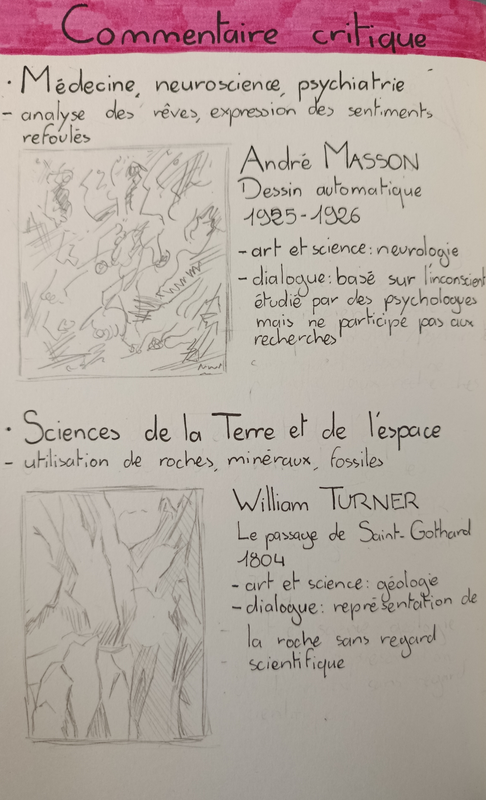 Commentaire critique
· Médecine, neuroscience, psychiatrie
- analyse des rêves, expression des sentiments
refoulés
André MASSON
Dessin automatique
1925-1926
- art et science: neurologie
- dialogue: basé sur l'inconscient
étudié par des psychologues
mais ne participe pas aux
recherches
· Sciences de la Terre et de l'espace
- utilisation de roches, minéraux, fossiles
William TURNER
Le passage de Saint-Gothard
1804
- art et science: géologie
- dialogue: représentation de
la roche sans regard
scientifique